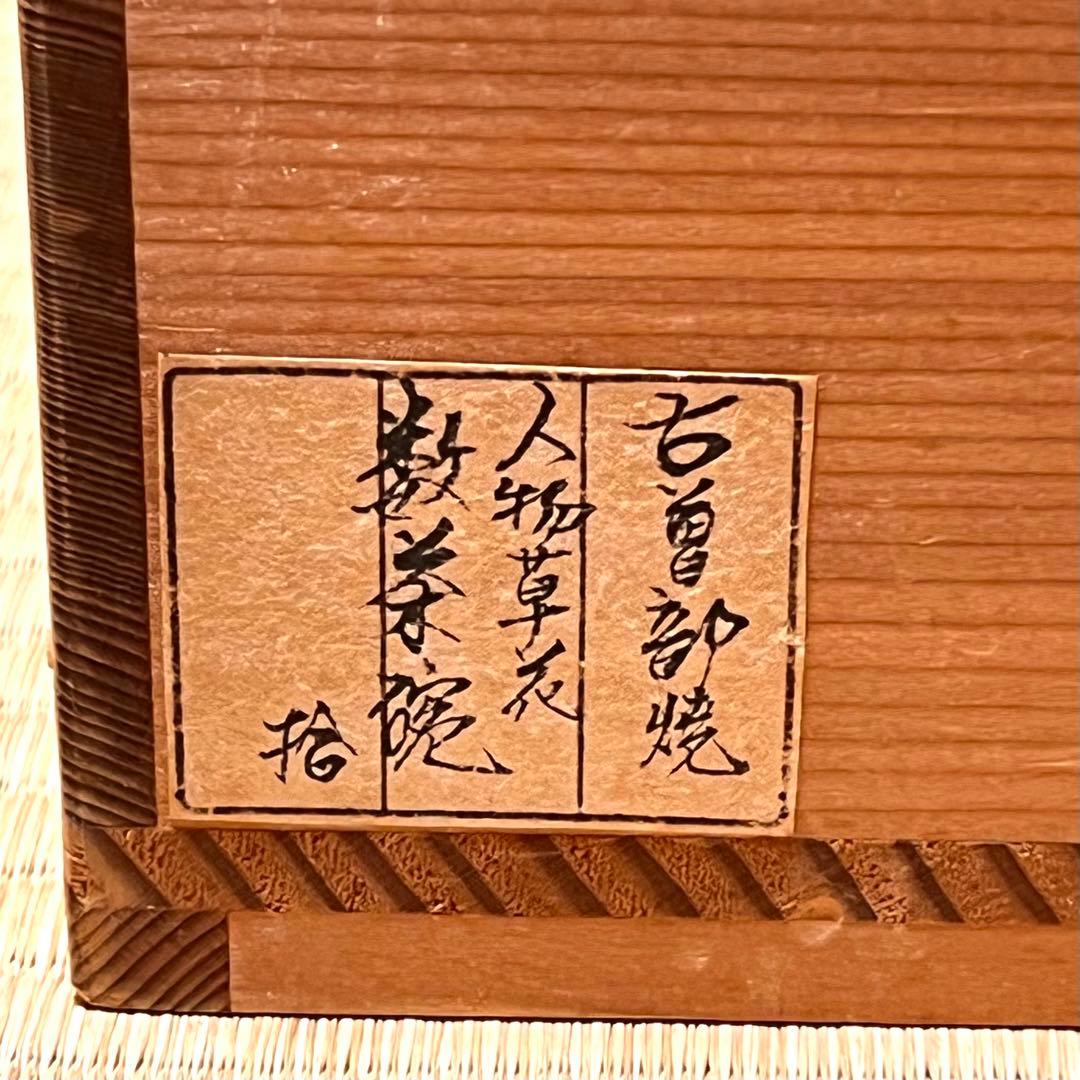 古曽部焼
人物草花
数茶碗
拾